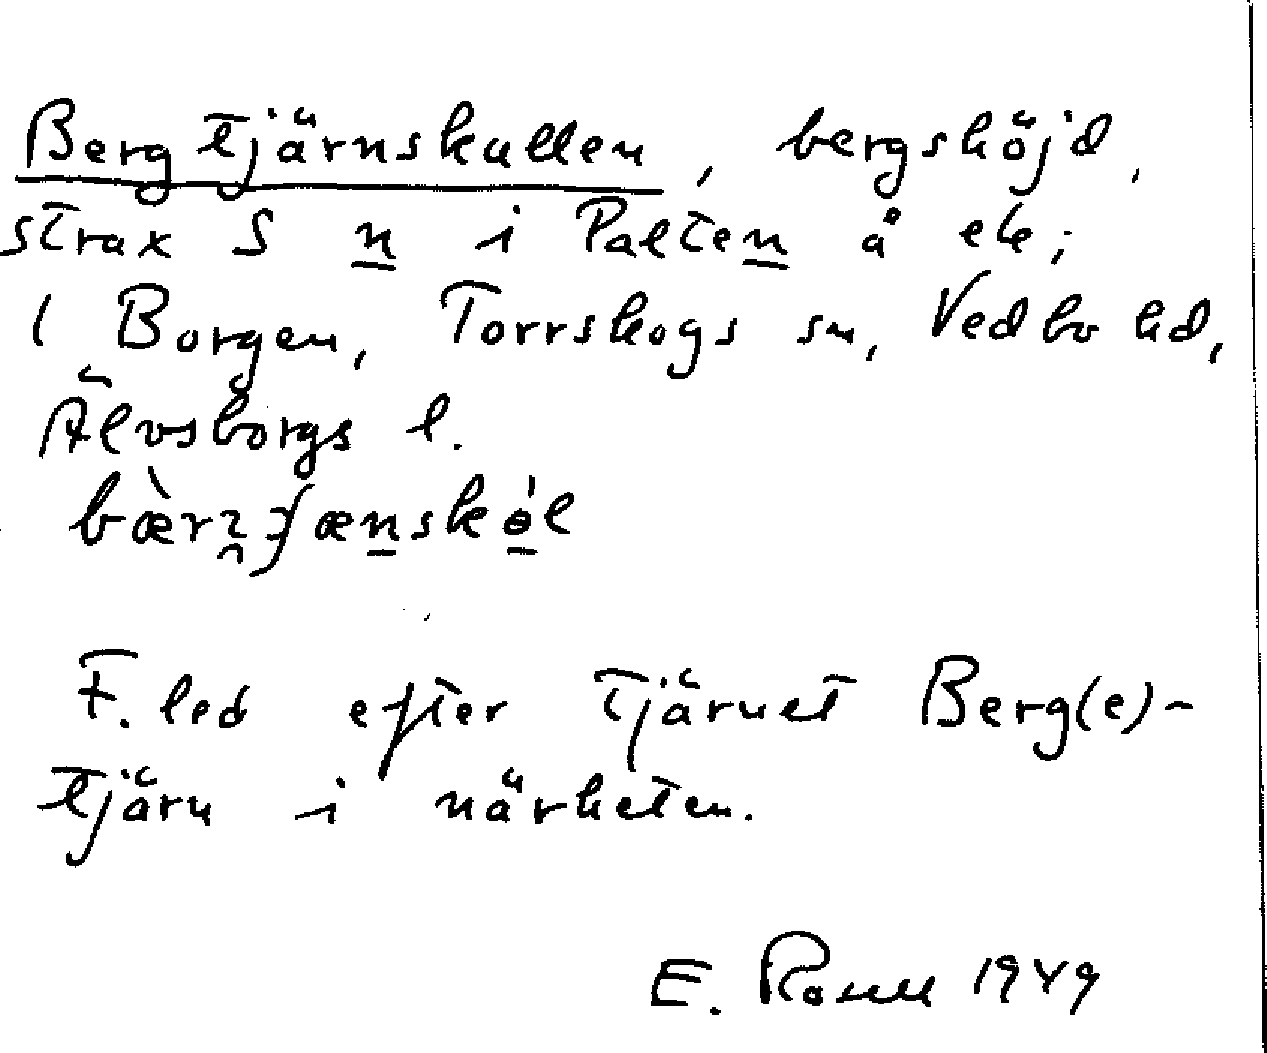 Bergtjärnskullen, bergshöjd,
strax S n i Palten å ek;
i Borgen, Torrskogs sn, Vedbo hd,
Älvsborgs l.
F. led efter tjärnet Berg(e)-
tjärn i närheten.
E. Rosell 1949